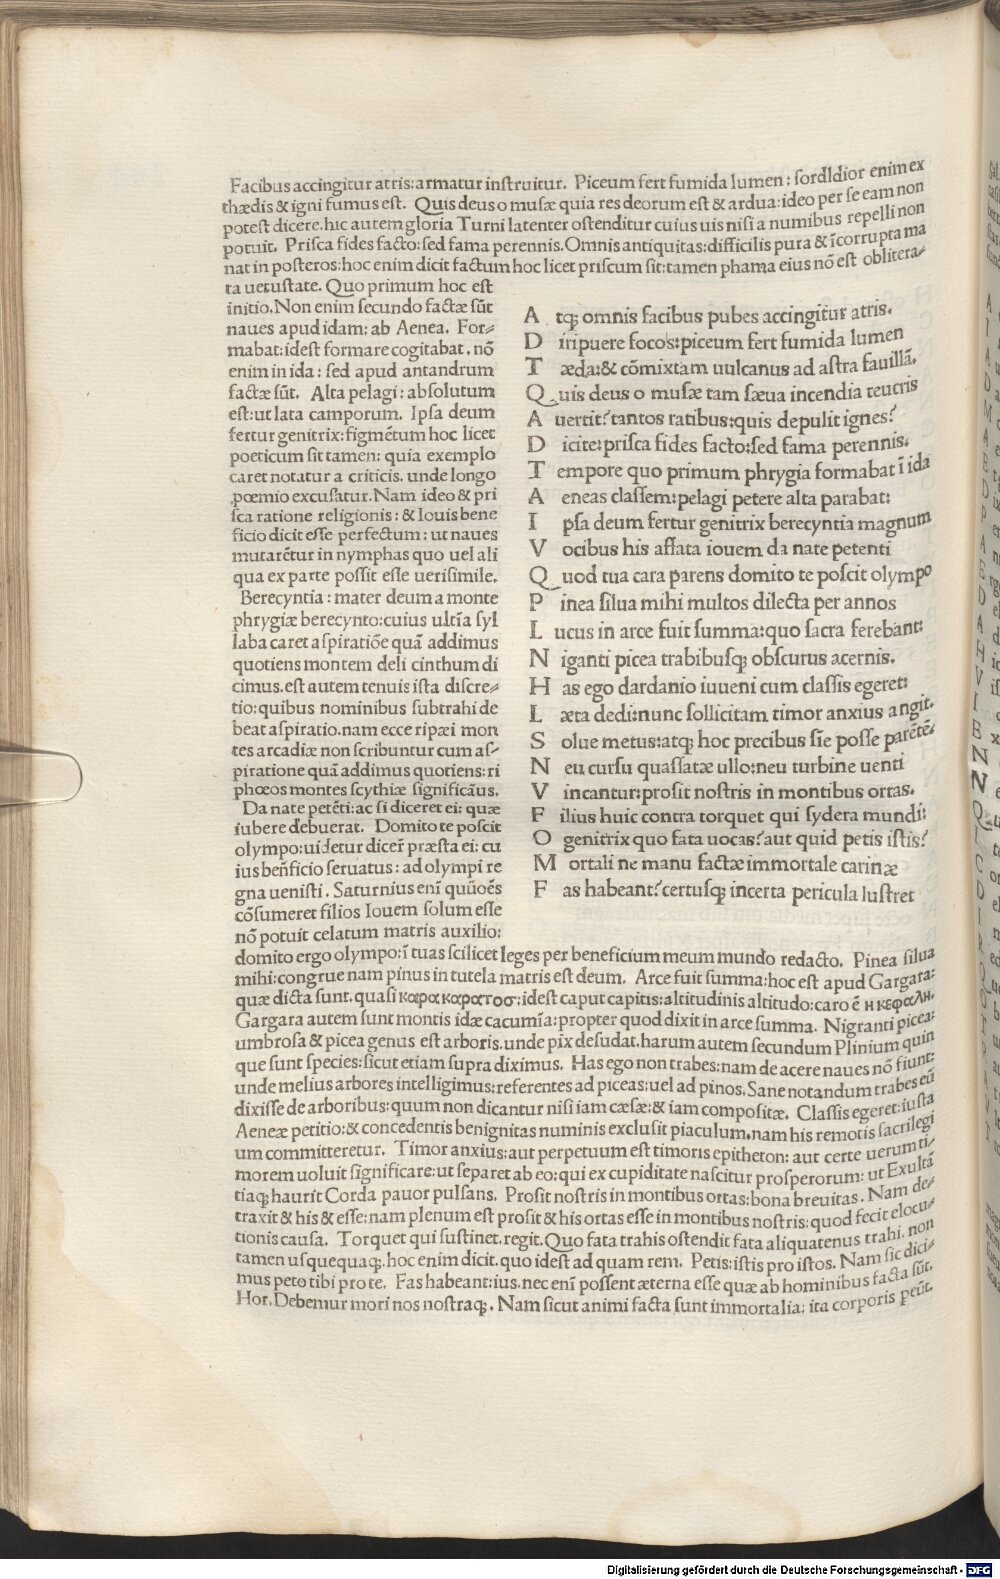 Facibus accingitur atris:armatur inſtruitur. Piceum fert fumida lumen : ſordldior enim ex
thædis & igni fumus eſt. Quis deus o muſæ quia res deorum eſt & ardua:ideo per ſe eam non
poteſt dicere.hic autem gloria Turni latenter oſtenditur cuius uis niſi a numibus repelli non
potuit. Priſca fides facto:ſed fama perennis.Omnis antiquitas:difficilis pura & ĩcorrupta ma
nat in poſteros:hoc enim dicit factum hoc licet priſcum ſit:tamen phama eius nõ eſt oblitera⸗
ta uetuſtate. Quo primum hoc eſt
initio.Non enim ſecundo factæ ſũt
naues apud idam: ab Aenea. For⸗
mabat:ideſt formare cogitabat. nõ
enim in ida : ſed apud antandrum
factæ ſũt. Alta pelagi : abſolutum
eſt:ut lata camporum. Ipſa deum
fertur genitrix:figmẽtum hoc licet
poeticum ſit tamen: quia exemplo
caret notatur a criticis. unde longo
ꝓœmio excuſatur. Nam ideo & pri
ſca ratione religionis : & Iouis bene
ficio dicit eſſe perfectum : ut naues
mutarẽtur in nymphas quo uel ali
qua ex parte poſſit eſſe ueriſimile.
Berecyntia : mater deum a monte
phrygiæ berecynto:cuius ultĩa ſyl
laba caret aſpiratiõe quã addimus
quotiens montem deli cinthum di
cimus.eſt autem tenuis iſta diſcre⸗
tio:quibus nominibus ſubtrahi de
beat aſpiratio.nam ecce ripæi mon
tes arcadiæ non ſcribuntur cum aſ⸗
piratione quã addimus quotiens:ri
phœos montes ſcythiæ ſignificãus.
Da nate petẽti:ac ſi diceret ei: quæ
iubere debuerat. Domito te poſcit
olympo:uidetur dicer̃ præſta ei: cu
ius beñficio ſeruatus : ad olympi re
gna ueniſti. Saturnius enĩ quũoẽs
cõſumeret filios Iouem ſolum eſſe
nõ potuit celatum matris auxilio:
A tqꝫ omnis facibus pubes accingitur atris.
D iripuere focos:piceum fert fumida lumen
T æda:& cõmixtam uulcanus ad aſtra fauillã.
Q uis deus o muſæ tam ſæua incendia teucris
A uertit?tantos ratibus:quis depulit ignes?
D icite:priſca fides facto:ſed fama perennis.
T empore quo primum phrygia formabat ĩ ida
A eneas claſſem:pelagi petere alta parabat:
I pſa deum fertur genitrix berecyntia magnum
V ocibus his affata iouem da nate petenti
Q uod tua cara parens domito te poſcit olympo
P inea ſilua mihi multos dilecta per annos
L ucus in arce fuit ſumma:quo ſacra ferebant:
N iganti picea trabibuſqꝫ obſcurus acernis.
H as ego dardanio iuueni cum claſſis egeret:
L æta dedi:nunc ſollicitam timor anxius angit.
S olue metus:atqꝫ hoc precibus ſie poſſe parẽtẽ.
N eu curſu quaſſatæ ullo:neu turbine uenti
V incantur:proſit noſtris in montibus ortas.
F ilius huic contra torquet qui ſydera mundi:
O genitrix quo fata uocas?aut quid petis iſtis?
M ortali ne manu factæ immortale carinæ
F as habeant?certuſqꝫ incerta pericula luſtret
domito ergo olympo:ĩ tuas ſcilicet leges per beneficium meum mundo redacto. Pinea ſilua
mihi:congrue nam pinus in tutela matris eſt deum. Arce fuit ſumma:hoc eſt apud Gargara:
quæ dicta ſunt. quaſi καρα καρατοσ:ideſt caput capitis:altitudinis altitudo:caro ẽ η κεφαλη.
Gargara autem ſunt montis idæ cacumĩa:propter quod dixit in arce ſumma. Nigranti picea:
umbroſa & picea genus eſt arboris.unde pix deſudat.harum autem ſecundum Plinium quin
que ſunt ſpecies:ſicut etiam ſupra diximus. Has ego non trabes:nam de acere naues nõ fiunt:
unde melius arbores intelligimus:referentes ad piceas:uel ad pinos.Sane notandum trabes eũ
dixiſſe de arboribus:quum non dicantur niſi iam cæſæ:& iam compoſitæ. Claſſis egeret:iuſta
Aeneæ petitio:& concedentis benignitas numinis excluſit piaculum.nam his remotis ſacrilegi
um committeretur. Timor anxius:aut perpetuum eſt timoris epitheton: aut certe uerum ti⸗
morem uoluit ſignificare:ut ſeparet ab eo:qui ex cupiditate naſcitur proſperorum: ut Exultã
tiaqꝫ haurit Corda pauor pulſans. Proſit noſtris in montibus ortas:bona breuitas. Nam de⸗
traxit & his & eſſe:nam plenum eſt proſit & his ortas eſſe in montibus noſtris:quod fecit elocu⸗
tionis cauſa. Torquet qui ſuſtinet.regit.Quo fata trahis oſtendit fata aliquatenus trahi. non
tamen uſquequaqꝫ.hoc enim dicit.quo ideſt ad quam rem. Petis:iſtis pro iſtos. Nam ſic dici⸗
mus peto tibi pro te. Fas habeant:ius.nec enĩ poſſent æterna eſſe quæ ab hominibus facta ſũt.
Hor.Debemur morti nos noſtraqꝫ. Nam ſicut animi facta ſunt immortalia: ita corporis peũt.
Digitalisierung gefördert durch die Deutsche Forschungsgemeinschaft - DFG